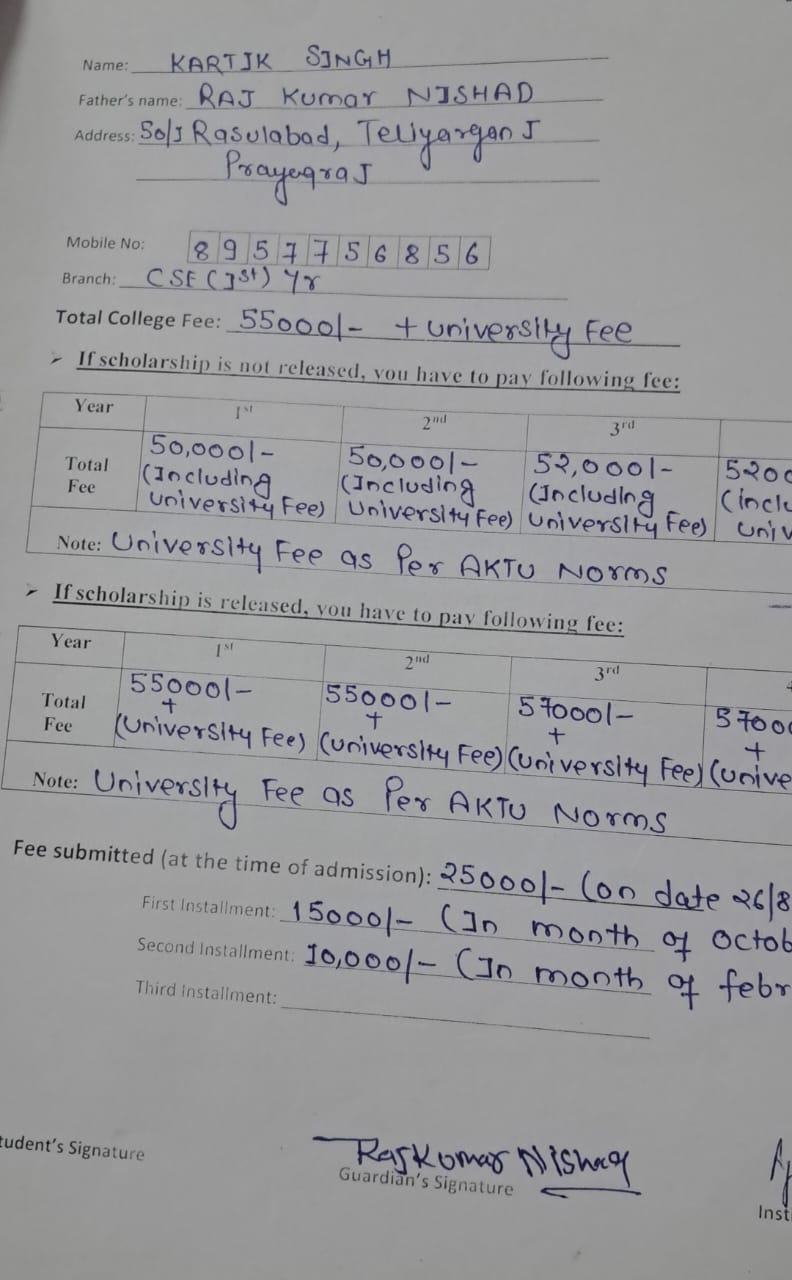 Name: KARTIK SINGH
Father's name: RAJ Kumar NISHAD
Address: 50/J Rasulabad, TeliyarganJ
PrayagraJ
Mobile No: 8957756856
Branch: CSE (Ist) Yr
Total College Fee: 55000/- + university Fee
➢ If scholarship is not released, you have to pay following fee:
Year 1st 2nd 3rd
Total Fee 50,000/- (Including university Fee) 50,000/- (Including University Fee) 52,000/- (Including university Fee) 5200
Note: University Fee as Per AKTU Norms
➢ If scholarship is released, you have to pay following fee:
Year 1st 2nd 3rd
Total Fee 55000/- + (University Fee) 55000/- + (university Fee) 57000/- + (University Fee) 5700 +
Note: University Fee as Per AKTU Norms
Fee submitted (at the time of admission): 25000/- (on date 26/8
First Installment: 15000/- (In month of Octob
Second Installment: 10,000/- (In month of febr
Third Installment:
RajKumar Nishad
tudent's Signature Guardian's Signature Inst